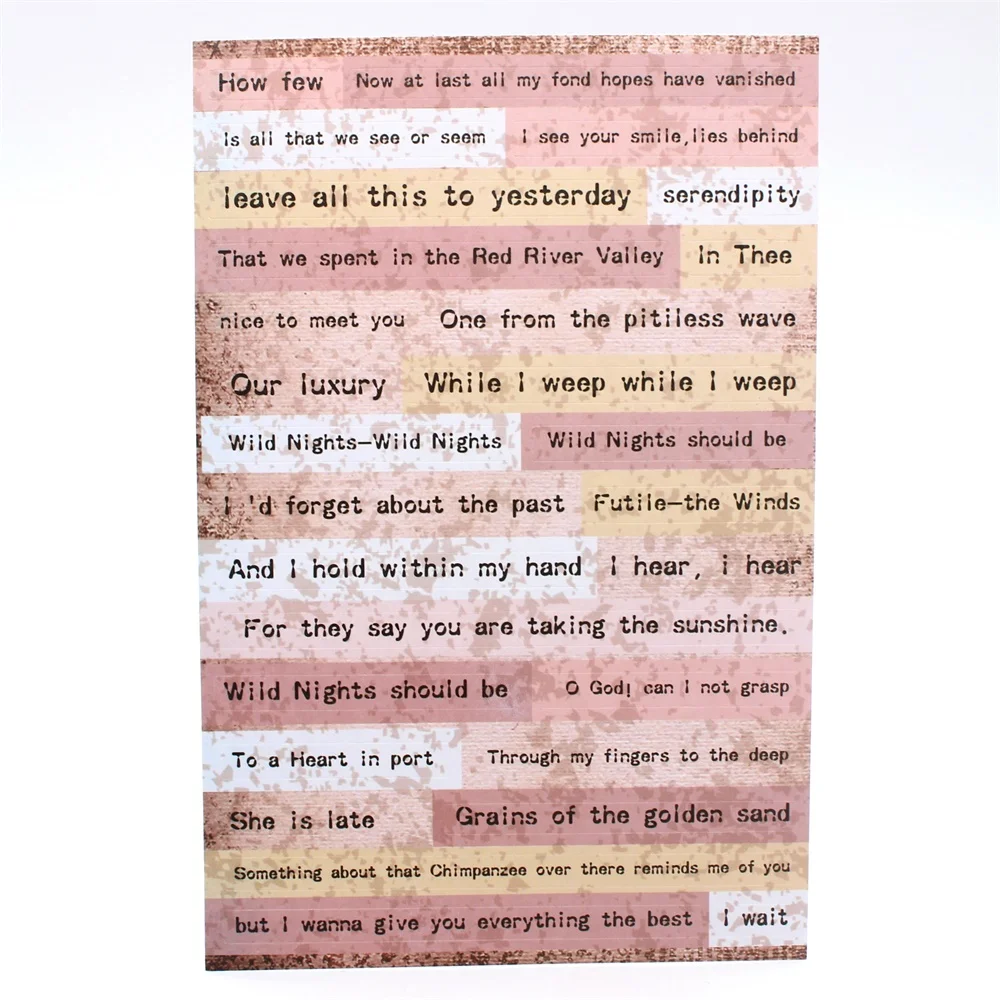 How few Now at last all my fond hopes have vanished
Is all that we see or seem I see your smile,lies behind
leave all this to yesterday serendipity
That we spent in the Red River Valley In Thee
nice to meet you One from the pitiless wave
Our luxury While I weep while I weep
Wild Nights—Wild Nights Wild Nights should be
I 'd forget about the past Futile—the Winds
And I hold within my hand I hear, i hear
For they say you are taking the sunshine.
Wild Nights should be O God! can I not grasp
To a Heart in port Through my fingers to the deep
She is late Grains of the golden sand
Something about that Chimpanzee over there reminds me of you
but I wanna give you everything the best I wait